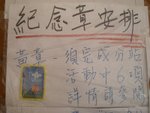 紀念章安排
黃章 - 須完成分站
活動中6項
詳情請參閱